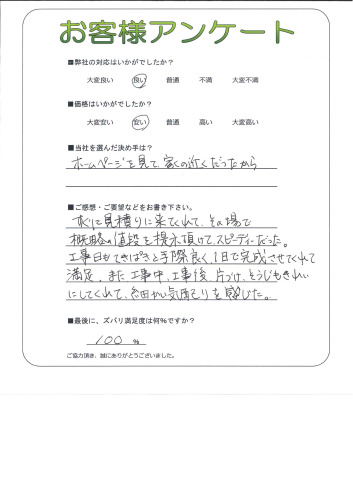 お客様アンケート
■弊社の対応はいかがでしたか？
大変良い 良い 普通 不満 大変不満
■価格はいかがでしたか？
大変安い 安い 普通 高い 大変高い
■当社を選んだ決め手は？
ホームページを見て、家の近くだったから
■ご感想・ご要望などをお書き下さい。
すぐに見積りに来てくれて、その場で
概略の値段を提示頂けて、スピーディーだった。
工事日もてきぱきと手際良く、1日で完成させてくれて
満足。また工事中、工事後、片づけ、そうじもきれい
にしてくれて、細かい気配りを感じた。
■最後に、ズバリ満足度は何%ですか？
100 %
ご協力頂き、誠にありがとうございました。